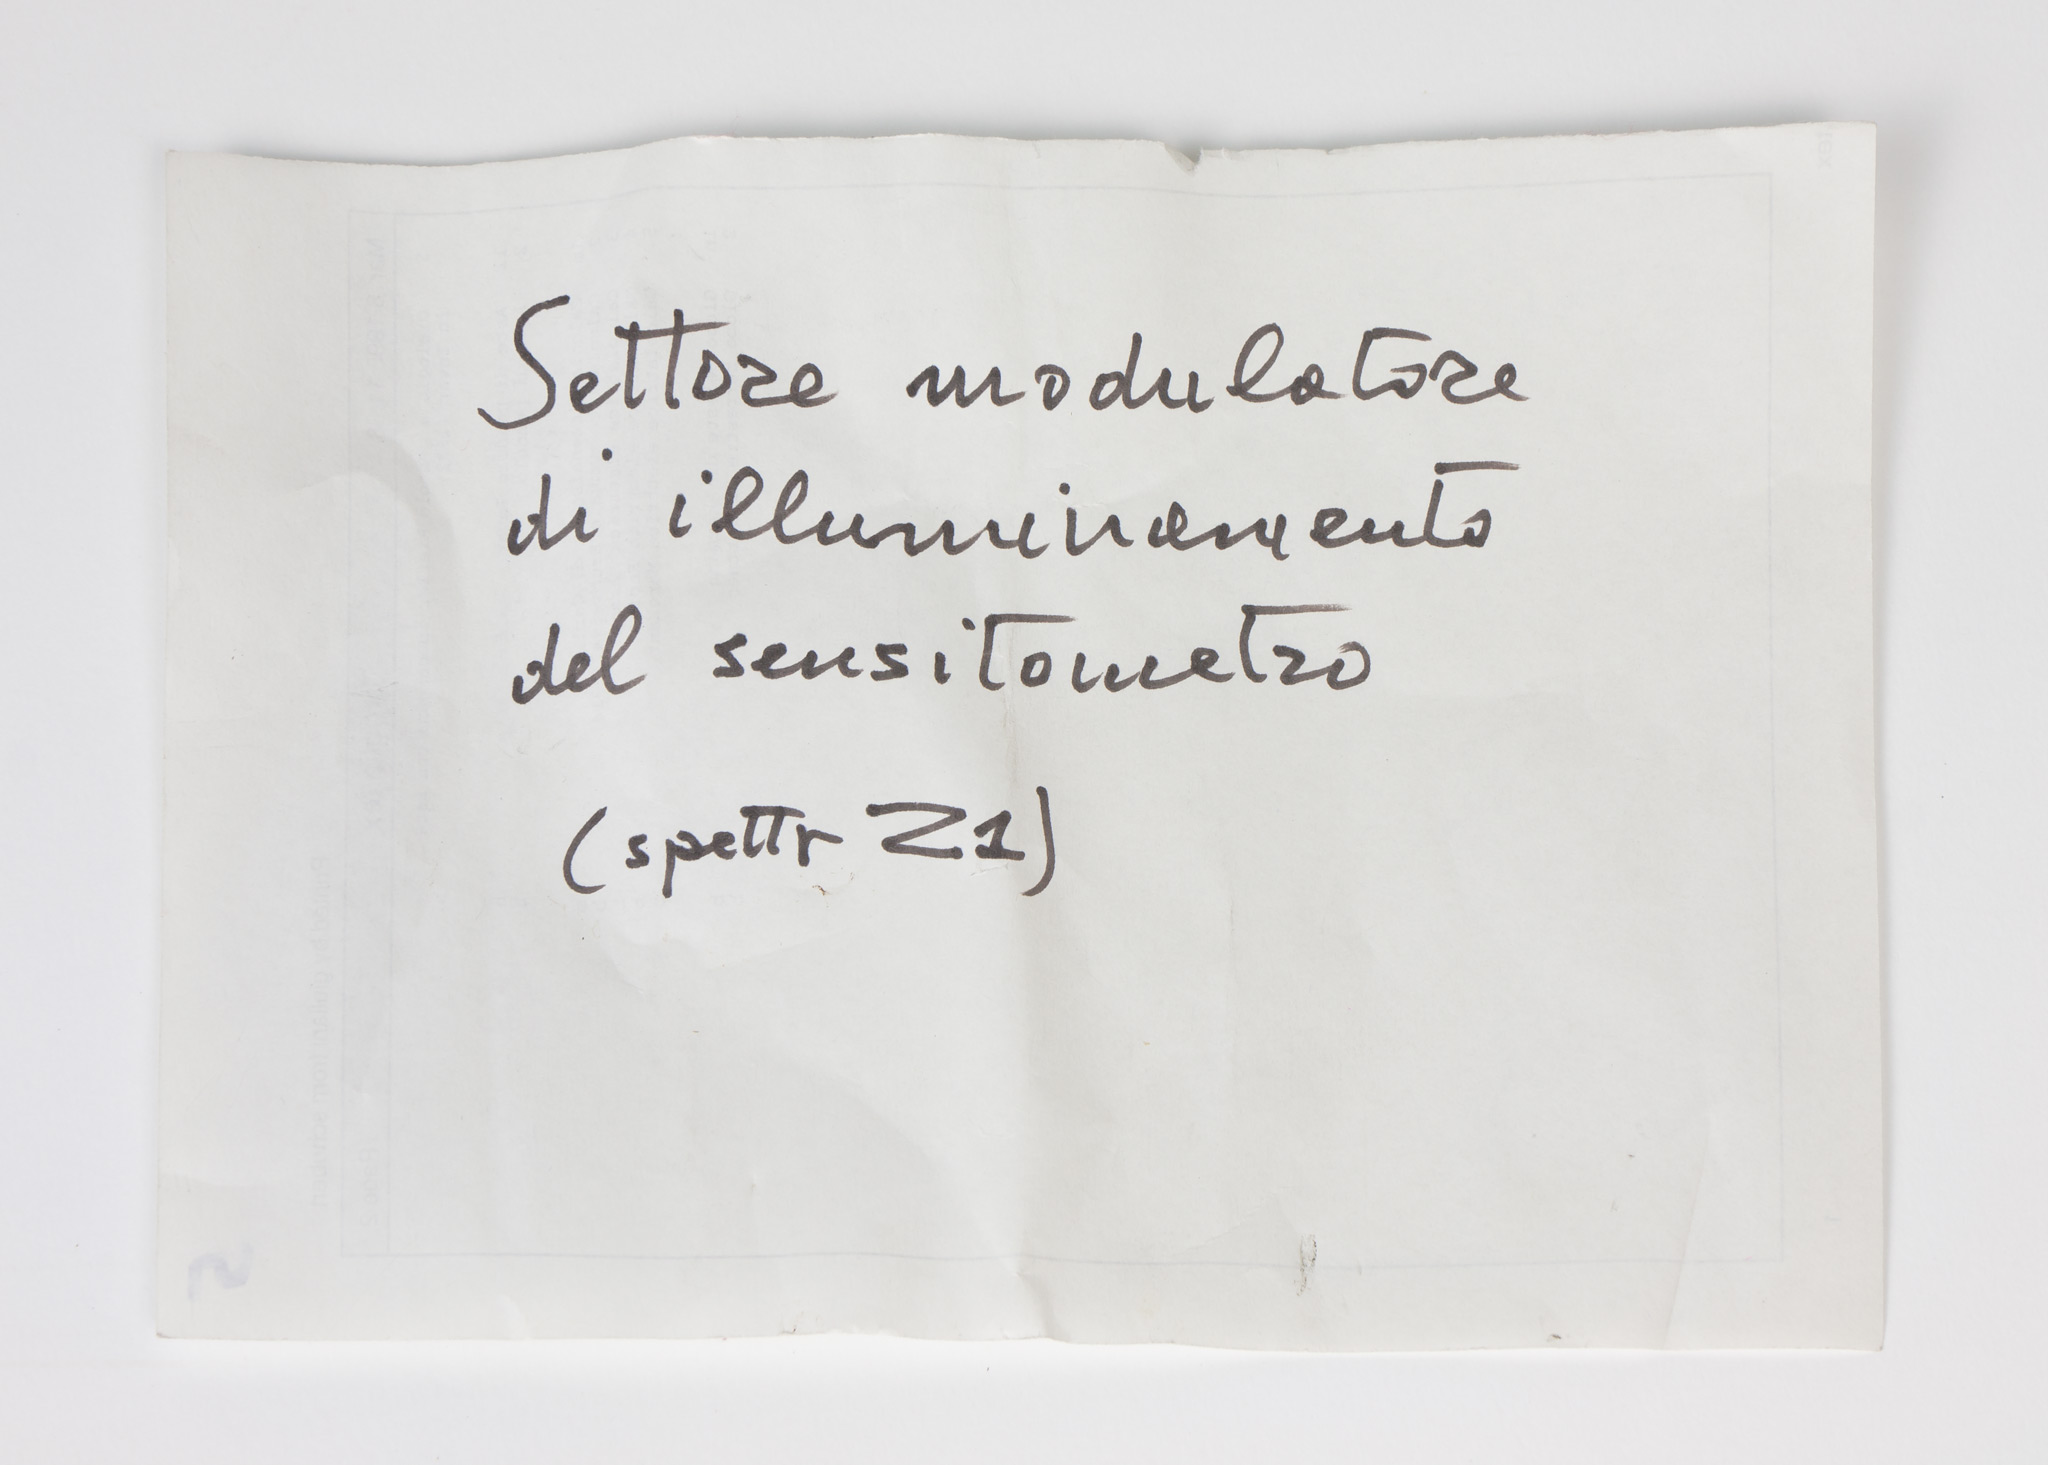 Settore modulatore
di illuminamento
del sensitometro
(spettr Z1)